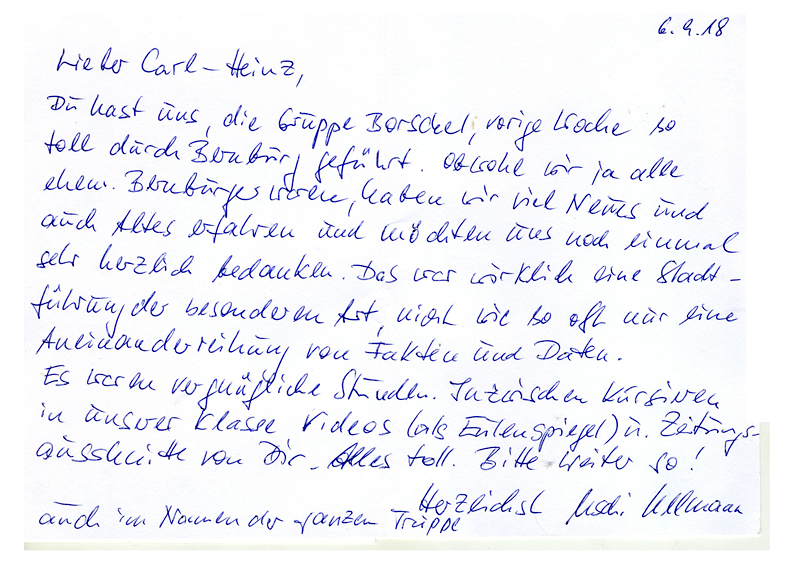 6.9.18
Lieber Carl-Heinz,
Du hast uns, die Gruppe Borschel, vorige Woche so
toll durch Bernburg geführt. Obwohl wir ja alle
ehem. Bernburger waren, haben wir viel Neues und
auch Altes erfahren und möchten uns noch einmal
sehr herzlich bedanken. Das war wirklich eine Stadt-
führung der besonderen Art, nicht wie so oft nur eine
Aneinanderreihung von Fakten und Daten.
Es waren vergnügliche Stunden. Inzwischen kursiren
in unserer Klasse Videos (als Eulenspiegel) u. Zeitungs-
ausschnitte von Dir. Alles toll. Bitte weiter so!
Herzlichst Ullmann
auch im Namen der ganzen Truppe